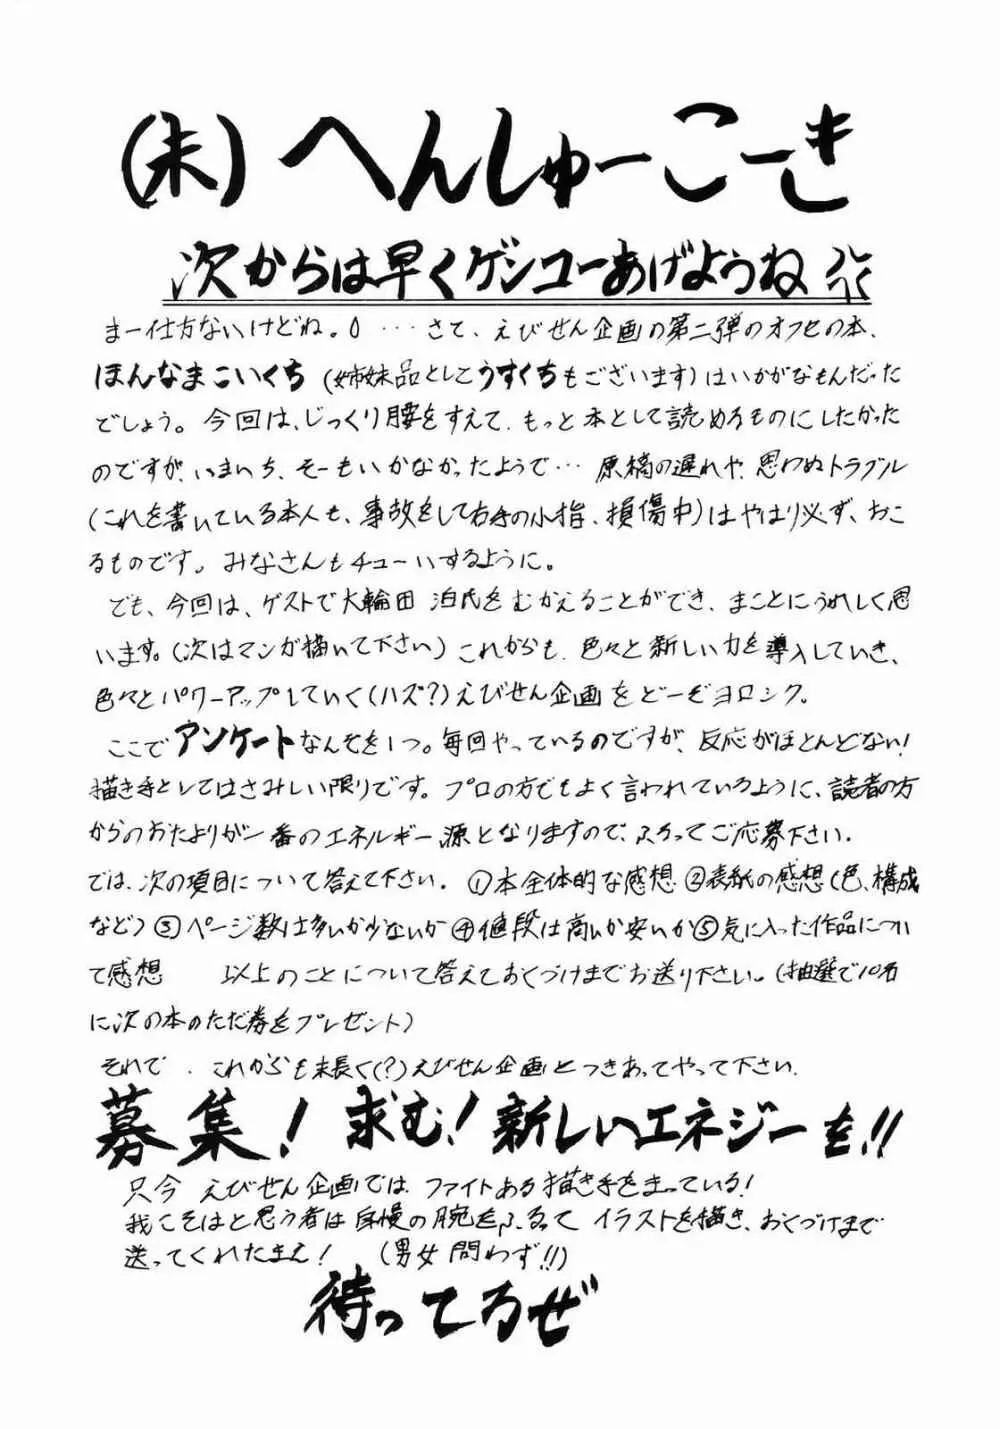 (末)へんしゅーこーき
次からは早くゲンコーあげようね
まー仕方ないけどね。 … さて、えびせん企画の第二弾のオフセの本、
ほんなまこいくち(姉妹品としてうすくちもございます)はいかがなもんだった
でしょう。今回は、じっくり腰をすえて、もっと本として読めるものにしたかった
のですが、いまいち、そーもいかなかったようで… 原稿の遅れや、思わぬトラブル
(これを書いている本人も、事故をして右手の小指、損傷中)はやはり必ず、おこ
るものです。みなさんもチューいするように。
でも、今回は、ゲストで大輪田 泊氏をむかえることができ、まことにうれしく思
います。(次はマンガ描いて下さい)これからも、色々と新しい力を導入していき、
色々とパワーアップしていく(ハズ?)えびせん企画をどーぞヨロシク。
ここでアンケートなんぞを1つ。毎回やっているのですが、反応がほとんどない!
描き手としてはさみしい限りです。プロの方でもよく言われているように、読者の方
からのおたよりが一番のエネルギー源となりますので、ふるってご応募下さい.
では、次の項目について答えて下さい. ①本全体的な感想②表紙の感想(色、構成
など)③ページ数は多いか少ないか④値段は高いか安いか⑤気に入った作品につい
て感想 以上のことについて答えておくづけまでお送り下さい。(抽選で10名
に次の本のただ券をプレゼント)
それで、これからも末長く(?)えびせん企画とつきあってやって下さい.
募集! 求む! 新しいエネジーを!!
只今 えびせん企画では、ファイトある描き手をまっている!
我こそはと思う者は自慢の腕をふるって イラストを描き、おくづけまで
送ってくれたまえ! (男女問わず!!)
待ってるぜ